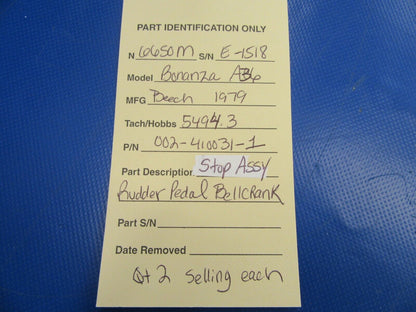 PART IDENTIFICATION ONLY
N 6650M S/N E-1518
Model Bonanza A36
MFG Beech 1979
Tach/Hobbs 5494.3
P/N 002-410031-1
Part Description Stop Assy
Rudder Pedal Bellcrank
Part S/N
Date Removed
Qt 2 selling each